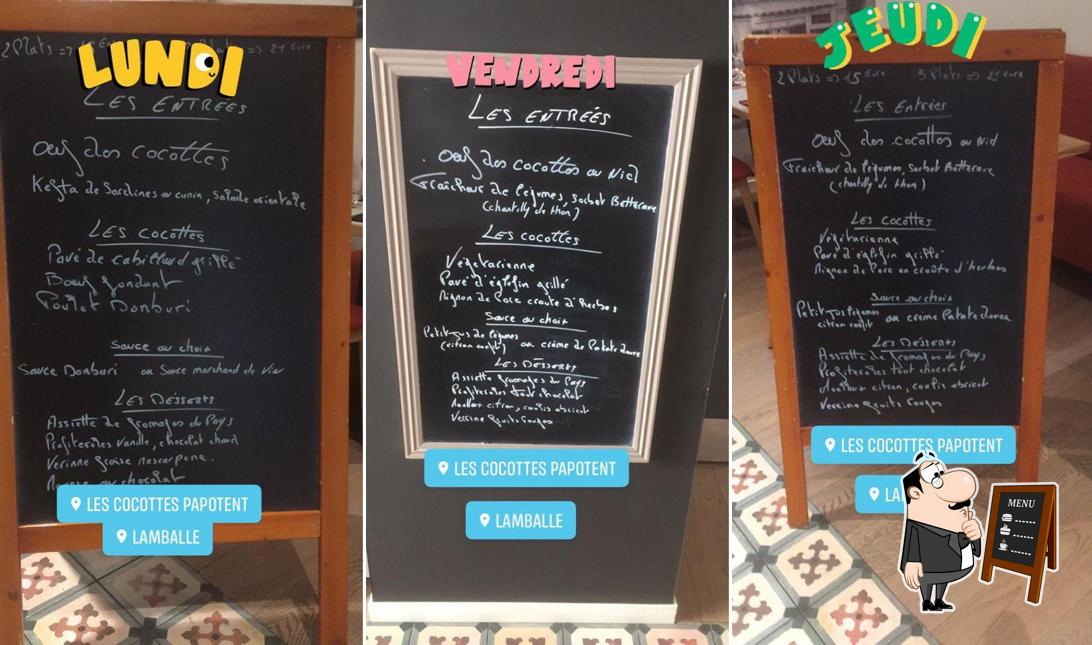 LUNDI
2 Plats => 15 Euro => 21 Euro
LES ENTRÉES
Oeuf des cocottes
Kefta de Sardines au cumin, salade orientale
LES COCOTTES
Pavé de cabillaud grillé
Boeuf fondant
Poulet Donburi
Sauce au choix
Sauce Donburi ou Sauce marchand de vin
LES DESSERTS
Assiette de fromages du Pays
Profiteroles vanille, chocolat chaud
Verrine fraise mascarpone.
au chocolat
LES COCOTTES PAPOTENT
LAMBALLE
VENDREDI
LES ENTRÉES
Oeuf des cocottes au Nid
Fraicheur de légumes, sorbet Betterave
(chantilly de thon)
LES COCOTTES
Végétarienne
Pavé d'églefin grillé
Mignon de Porc croute d'herbes
Sauce au choix
Petit jus de légumes
(citron confit) ou crème de Patate douce
LES DESSERTS
Assiette fromages du Pays
Profiteroles tout chocolat
Moelleux citron, coulis abricot
Verrine fruits rouges
LES COCOTTES PAPOTENT
LAMBALLE
JEUDI
2 Plats => 15 Euro 3 Plats => 21 Euro
LES Entrées
Oeuf des cocottes au Nid
Fraicheur de légumes, Sorbet Betterave
(chantilly de thon)
LES COCOTTES
Végétarienne
Pavé d'églefin grillé
Mignon de Porc en croute d'herbes
Sauce au choix
Petit jus légumes
citron confit ou crème Patate douce
LES DESSERTS
Assiette de fromages du Pays
Profiteroles tout chocolat
Moelleux citron, coulis abricot
Verrine fruits rouges
LES COCOTTES PAPOTENT
LA
MENU